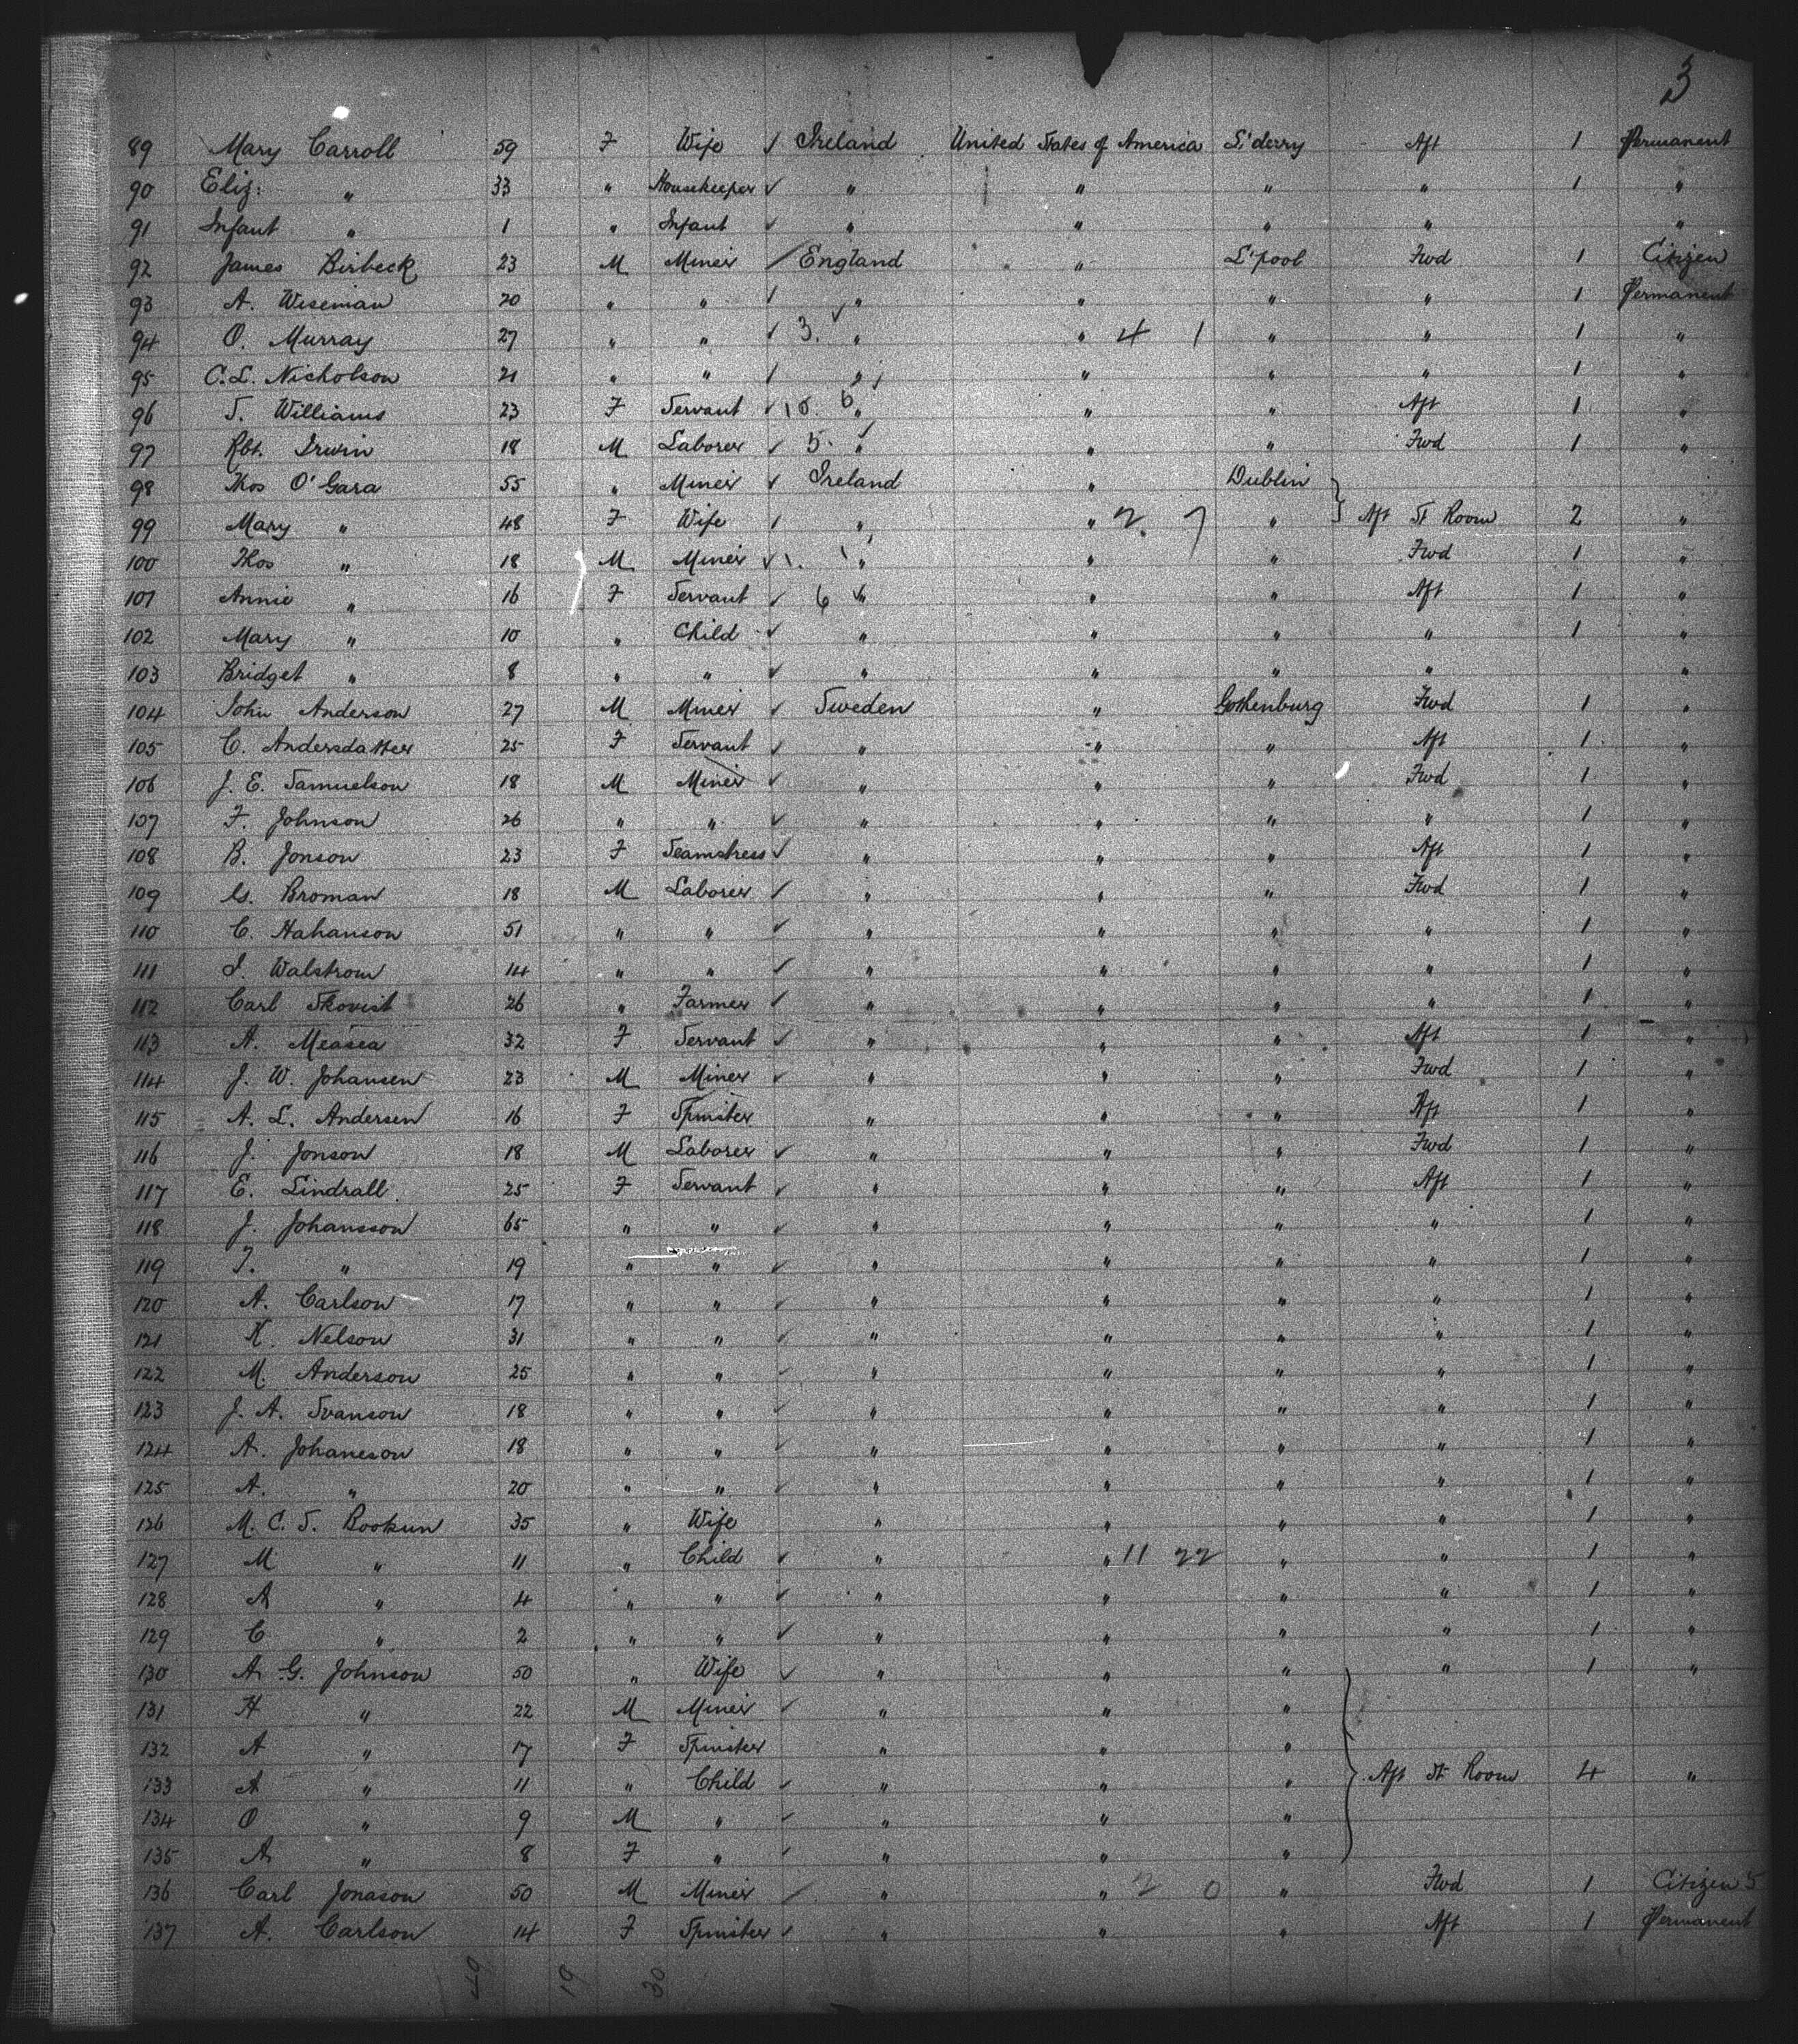 3
89 Mary Carroll 59 F Wife ✓ Ireland United States of America L'derry Aft 1 Permanent
90 Eliz: " 33 " Housekeeper ✓ " " " " 1 "
91 Infant " 1 " Infant ✓ " " " " "
92 James Birbeck 23 M Miner ✓ England " L'pool Fwd 1 Citizen
93 A. Wiseman 20 " " ✓ " " " " 1 Permanent
94 O. Murray 27 " " ✓ 3. " " 4 1 " " 1 "
95 C.L. Nicholson 21 " " ✓ " " " " 1 "
96 S. Williams 23 F Servant ✓ 10. 6 " " " Aft 1 "
97 Rbt. Irwin 18 M Laborer ✓ 5. " " " Fwd 1 "
98 Thos O'Gara 55 " Miner ✓ Ireland " Dublin
99 Mary " 48 F Wife ✓ " " 2. 7 " Aft St Room 2 "
100 Thos " 18 M Miner ✓ 1. 1 " " " Fwd 1 "
101 Annie " 16 F Servant ✓ 6 " " " Aft 1 "
102 Mary " 10 " Child ✓ " " " " 1 "
103 Bridget " 8 " " ✓ " " " " "
104 John Anderson 27 M Miner ✓ Sweden " Gothenburg Fwd 1 "
105 C. Andersdatter 25 F Servant ✓ " " " Aft 1 "
106 J. E. Samuelson 18 M Miner ✓ " " " Fwd 1 "
107 F. Johnson 26 " " ✓ " " " " 1 "
108 B. Jonson 23 F Seamstress ✓ " " " Aft 1 "
109 G. Broman 18 M Laborer ✓ " " " Fwd 1 "
110 C. Hahanson 51 " " ✓ " " " " 1 "
111 I. Walstrom 14 " " ✓ " " " " 1 "
112 Carl Skovist 26 " Farmer ✓ " " " " 1 "
113 A. Measea 32 F Servant ✓ " " " Aft 1 "
114 J. W. Johansen 23 M Miner ✓ " " " Fwd 1 "
115 A. L. Andersen 16 F Spinster " " " Aft 1 "
116 J. Jonson 18 M Laborer ✓ " " " Fwd 1 "
117 E. Lindrall 25 F Servant ✓ " " " Aft 1 "
118 J. Johansson 65 " " ✓ " " " " 1 "
119 T. " 19 " " ✓ " " " " 1 "
120 A. Carlson 17 " " ✓ " " " " 1 "
121 K. Nelson 31 " " ✓ " " " " 1 "
122 M. Anderson 25 " " ✓ " " " " 1 "
123 J. A. Svanson 18 " " ✓ " " " " 1 "
124 A. Johaneson 18 " " ✓ " " " " 1 "
125 A. " 20 " " ✓ " " " " 1 "
126 M. C. S. Bookun 35 " Wife " " " " 1 "
127 M " 11 " Child ✓ " " 11 22 " " 1 "
128 A " 4 " " ✓ " " " " 1 "
129 C " 2 " " ✓ " " " " 1 "
130 A. G. Johnson 50 " Wife ✓ " " " " 1 "
131 H " 22 M Miner ✓ " " "
132 A " 17 F Spinster " " "
133 A " 11 " Child ✓ " " " Aft St Room 4 "
134 O " 9 M " ✓ " " "
135 A " 8 F " ✓ " " "
136 Carl Jonason 50 M Miner ✓ " " 2 0 " Fwd 1 Citizen 5
137 A. Carlson 14 F Spinster ✓ " " " Aft 1 Permanent
49 19 30